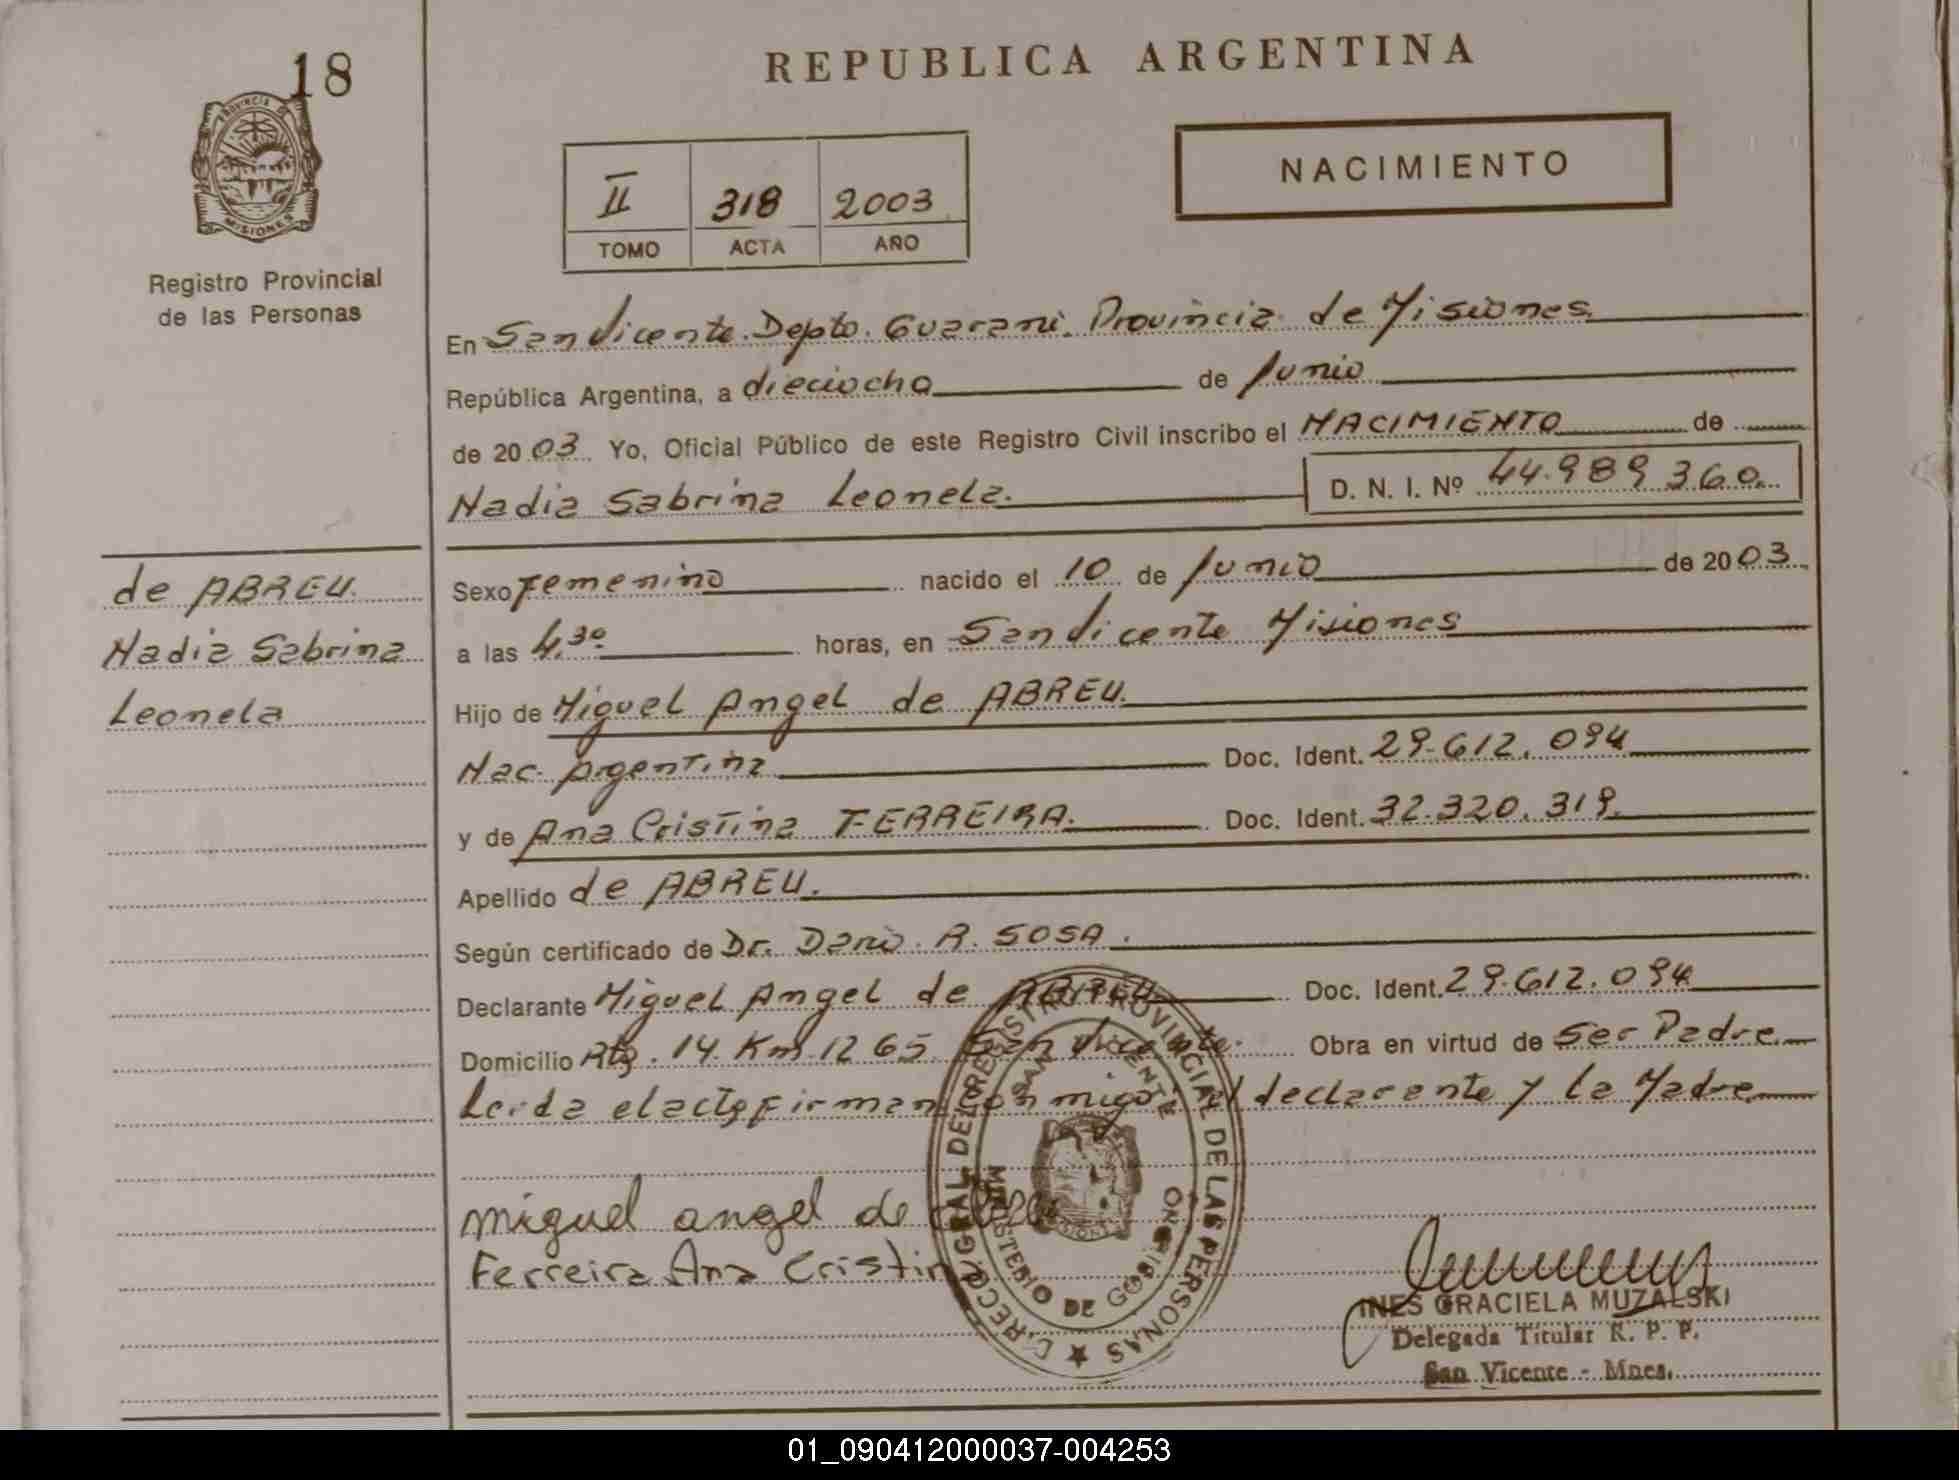 18
PROVINCIA DE
MISIONES
Registro Provincial
de las Personas
REPUBLICA ARGENTINA
II 318 2003
TOMO ACTA AÑO
NACIMIENTO
En San Vicente. Depto. Guarani. Provincia de Misiones.
República Argentina, a dieciocho de Junio
de 2003. Yo, Oficial Público de este Registro Civil inscribo el NACIMIENTO de
Nadia Sabrina Leonela. D. N. I. Nº 44.989 360.
de ABREU.
Nadia Sabrina
Leonela
Sexo Femenino nacido el 10 de Junio de 2003.
a las 4.30 horas, en San Vicente Misiones
Hijo de Miguel Angel de ABREU.
Nac. Argentina Doc. Ident. 29.612.094
y de Ana Cristina FERREIRA. Doc. Ident. 32.320.319.
Apellido de ABREU.
Según certificado de Dr. Dario. R. SOSA.
Declarante Miguel Angel de ABREU Doc. Ident. 29.612.094
Domicilio Rta. 14. Km. 1265. San Vicente. Obra en virtud de Ser Padre.
Leida el acta firman conmigo el declarante y la Madre
miguel angel de
Ferreira Ana Cristina
DIRECC. GRAL. DEL REGISTRO PROVINCIAL DE LAS PERSONAS
SAN VICENTE
MINISTERIO DE GOBIERNO
INES GRACIELA MUZALSKI
Delegada Titular R. P. P.
San Vicente - Mnes.
01_090412000037-004253